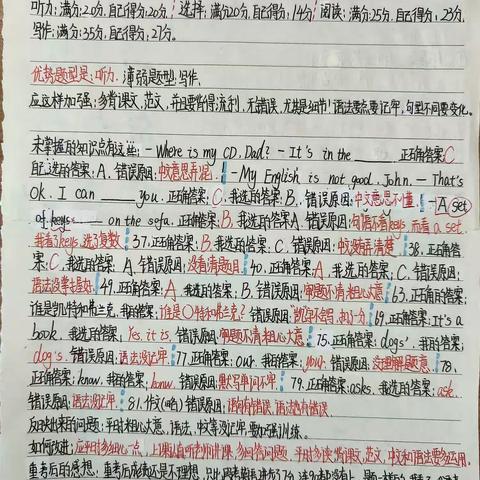 听力:满分:20分,自己得分:20分,选择:满分20分,自己得分:14分 阅读:满分:25分,自己得分:23分,
写作:满分:35分,自己得分:27分。
优势题型是:听力,薄弱题型:写作,
应这样加强:多背课文,范文,并且要背得流利,无错误,尤其是细节!语法要点要记牢,句型不同要变化。
未掌握的知识点有这些:-Where is my CD, Dad? -It's in the ____ 正确答案:C
自己选的答案:A,错误原因:中文意思弄混。 -My English is not good, John. -That's
ok. I can ____ you.正确答案:C,我选的答案:B,错误原因:中文意思不懂。 -A set
of keys ____ on the sofa.正确答案:B,我选的答案A,错误原因:句谓不看keys,而看a set,
我看了keys,选了复数 37.正确答案:B,我选的答案:C,错误原因: 38.正确答
案:C,我选的答案:A,错误原因:没看清题目 40.正确答案:A,我选的答案:C,错误原因:
语法没掌握好 49.正确答案:A,我选的答案:B,错误原因:解题不清,粗心大意, 63.正确的答案:
谁是凯特和弗兰克,我的答案:谁是 特和弗兰克?错误原因: 69.正确答案:It's a
book.我选的答案:Yes, it is.错误原因:解题不清,粗心大意, 75.正确答案:dogs'.我的答案:
dog's.错误原因:语法没记牢, 77.正确答案:out.我的答案:you.错误原因:没理解题意, 78.
正确答案:know.我的答案:konw.错误原因:默写单词不牢, 79.正确答案:asks.我选的答案:ask.
错误原因:语法没记牢, 81.作文(-8)错误原因:语句有错误,语法有错误,
反映出来的问题:平时粗心大意,语法,中文等没记牢,要加强训练。
如何改进:应平时多细心一点,上课认真听老师讲课,多回答问题,平时多读背课文,范文,中文和语法要多运用。